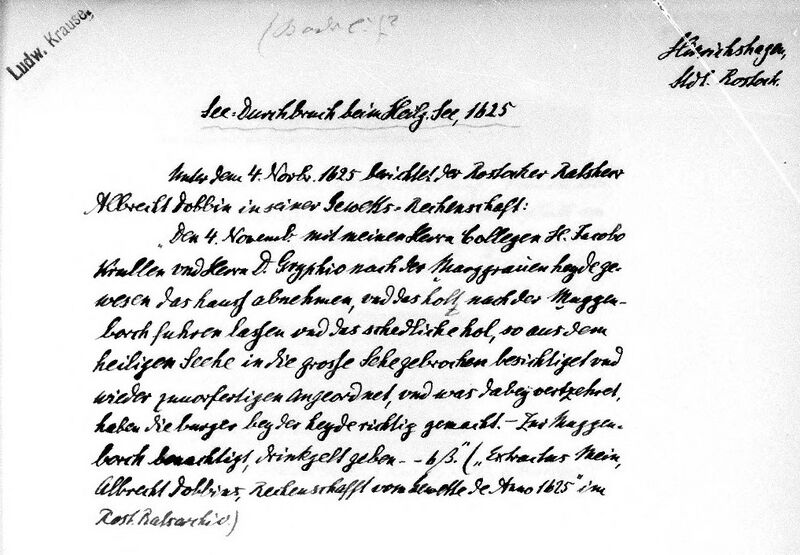 Ludw. Krause.
Hinrichshagen,
Stdt. Rostock.
See-Durchbruch beim Heilg. See, 1625
Unter dem 4. Novbr. 1625 berichtet der Rostocker Ratsherr
Albrecht Dobbin in seiner Gewetts-Rechenschaft:
"Den 4. Novemb. mit meinen Herrn Collegen H. Jacobo
Krullen vnd Herrn D. Gryphio nach der Marggrauen heyde ge-
wesen das hauss abnehmen, vnd das holtz nach der Muggen-
borch fuhren lassen vnd das schedliche hol, so aus dem
heiligen Seehe in die grosse Sehe gebrochen besichtiget vnd
wieder zuuorfertigen angeordnet, vnd was dabey vertzehret,
haben die burger bey der heyde richtig gemacht. – Zur Muggen-
borch benachtigt, drinkgelt geben - - 6 ß." ("Extractus Mein,
Albrecht Dobbins Rechenschafft vom Gewette de Anno 1625" im
Rost. Ratsarchiv.)